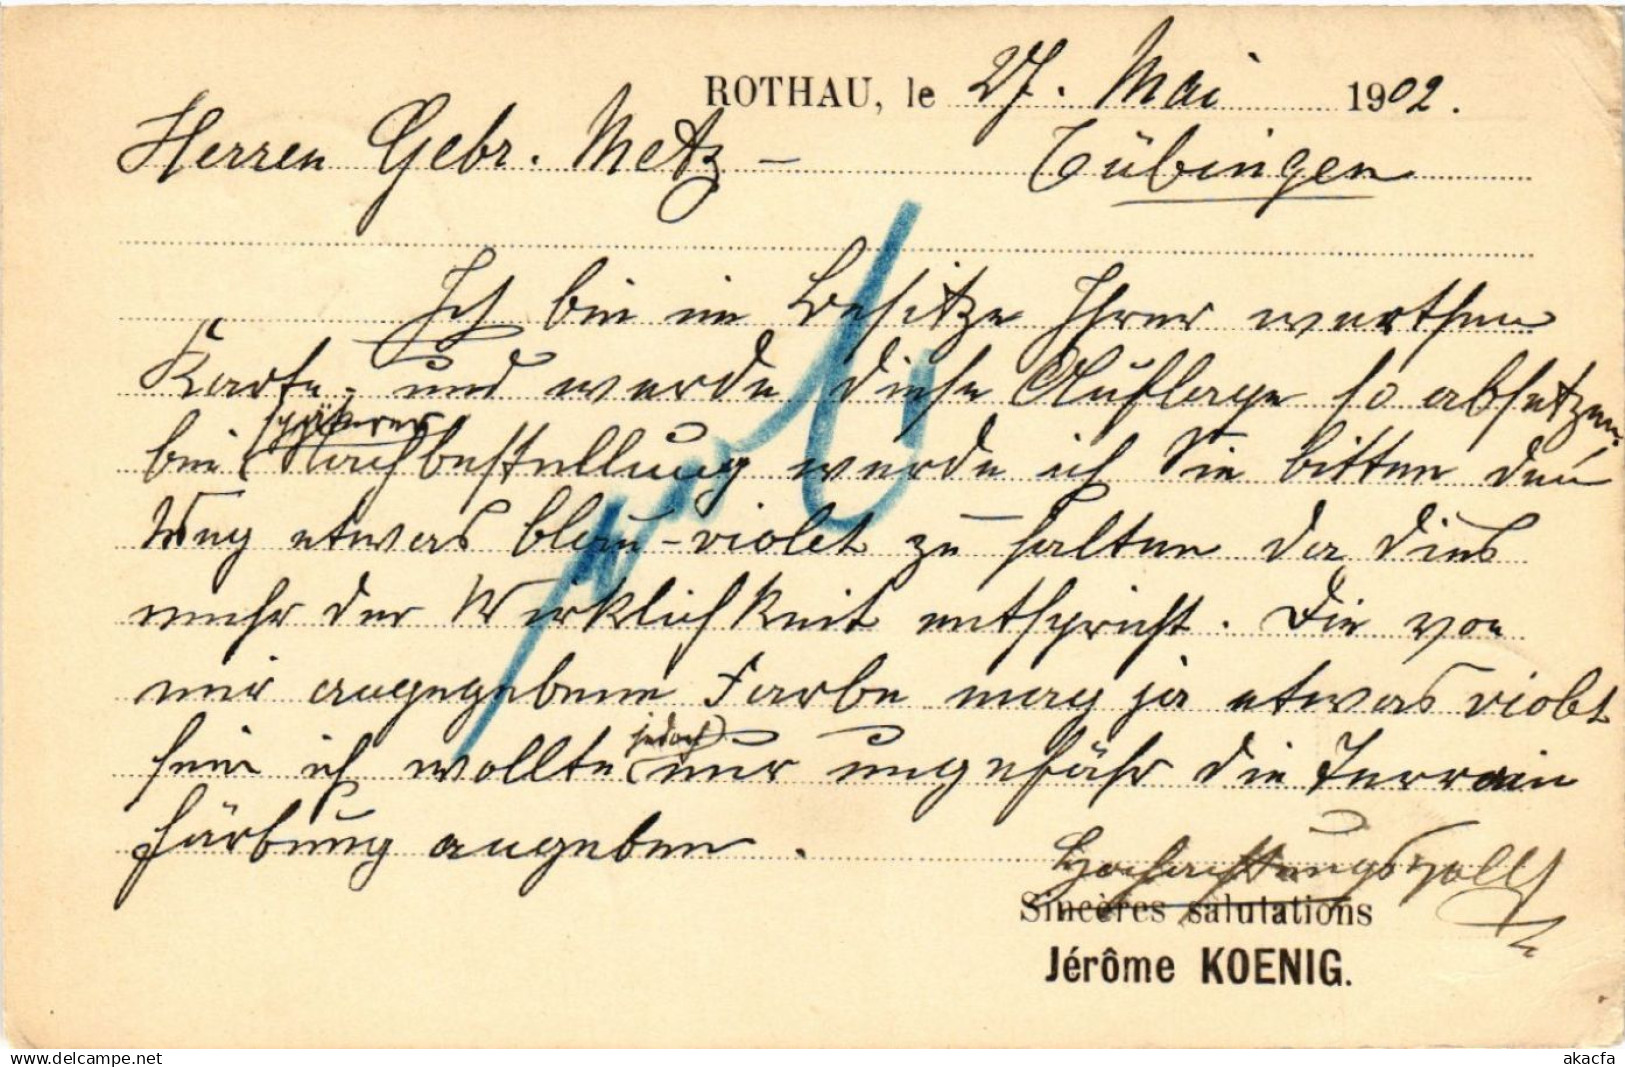 ROTHAU, le 27. Mai 1902.
Herren Gebr. Metz – Tübingen
Ich bin im Besitze Ihrer werthen
Karte und werde diese Auflage so absetzen.
bei späterer Nachbestellung werde ich Sie bitten den
Weg etwas blau-violet zu halten da dies
mehr der Wirklichkeit entspricht. Die von
mir angegebene Farbe mag ja etwas violet
sein ich wollte jedoch nur ungefähr die Terrain
färbung angeben.
Hochachtungsvoll
Sincères salutations
Jérôme KOENIG.
www.delcampe.net
akacfa